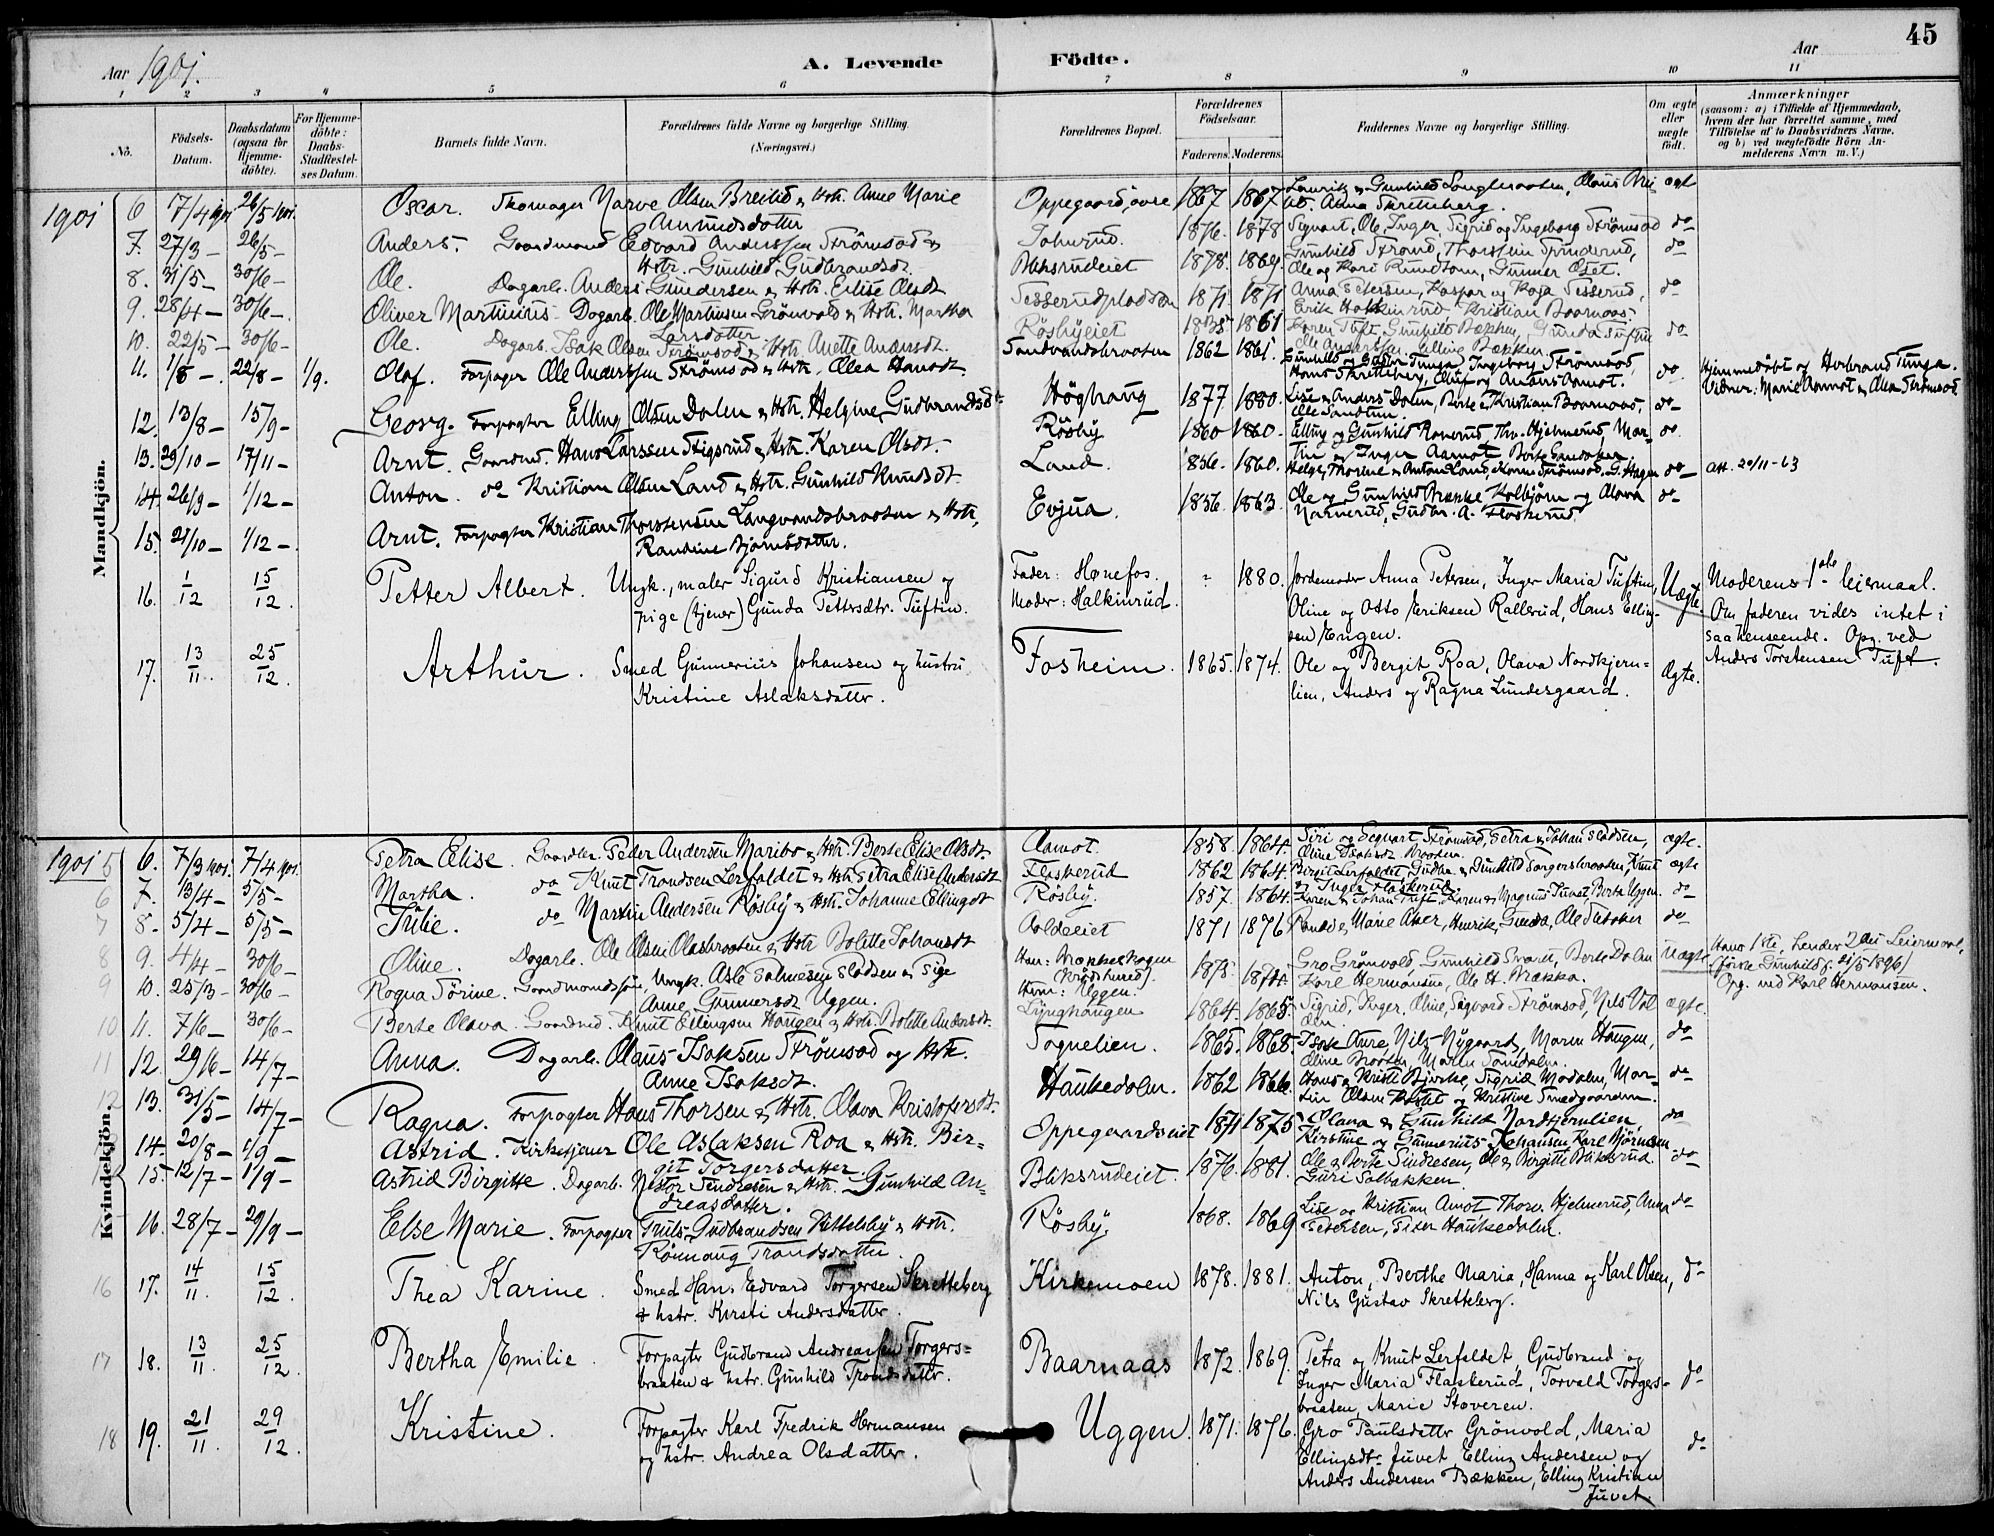 45
Aar 1901. A. Levende Födte. Aar
1 2 3 4 5 6 7 8 9 10 11
No. Födsels-Datum. Daabsdatum (ogsaa for Hjemme-döbte). For Hjemme-döbte: Daabs-Stadfæstel-ses Datum. Barnets fulde Navn. Forældrenes fulde Navne og borgerlige Stilling. (Næringsvei.) Forældrenes Bopæl. Forældrenes Födselsaar. Faderens. Moderens. Faddernes Navne og borgerlige Stilling. Om ægte eller uægte födt. Anmærkninger (saasom: a) i Tilfælde af Hjemmedaab, hvem der har forrettet samme, med Tilföielse af to Daabsvidners Navne, og b) ved uægtefödte Börn An-melderens Navn m. V.)
Mandkjön.
1901
6 7/4 1901 26/5 1901. Oscar. Narve Olsen Breilid & Hstr. Anne Marie Amundsdatter Oppegaard, övre 1867 1867 ægt
7. 27/3 - 26/5 - Anders. Gaardmand Edvard Anderssen Strömsod & Hstr. Gunhild Gudbrandsdt. Johnrud. 1876. 1878 Sigvart, Ole, Inger, Sigrid og Ingeborg Strömsod do
8. 31/5 - 30/6 - Ole. Dagarb. Anders Gundersen & Hstr. Eelise Olsdt. Bliksrudeiet 1878. 1869. Gunhild Strand, Thorstein Ole og Kari Gunnar do
9. 28/4 - 30/6 -. Oliver Martinius Dagarb. Ole Martinsen Grönvold & Hstr. Martha Larsdatter 1871. 1871 Anna Petersen, Kaspar og Kaja Tesserud, Erik Halkinrud Kristian Baarnaas. do
10. 22/5 - 30/6 - Ole. Dagarb. Isak Olsen Strömsod & Hstr. Anette Andersdt. Rösbyeiet 1835 1861 Karen Tuft, Gunhild Bækken, do
11. 1/8 -. 22/8 - 1/9. Olaf. Forpagter Ole Anderssen Strömsod & Hstr. Olea Hansdt. Sandvandsbraaten 1862 1861. Ingeborg Strömsod, Hans Skretteberg, Oluf og Anders Aamot. do Hjemmedöbt af Herbrand Tunga. Vidner: Marie Aamot & Olea Strömsod.
12. 13/8 - 15/9 - Georg. Forpagter Elling Olsen Dalen & Hstr. Helgine Gudbrandsdt. Höghaug 1877 1880. Lise & Anders Dalen, Berte & Kristian Baarnaas, do
13. 29/10 - 17/11 - Arnt. Gaardmd. Hans Larssen Stigsrud & Hstr. Karen Olsdt. Rösby 1860 1860. Elling og Gunhild Thv. Hjelmerud, Mar-tin og Inger Aamot, do.
14. 26/9 - 1/12 - Anton. do Kristian Olsen Land & Hstr. Gunhild Knudsdt. Land. 1856. 1860. Helge, Thorine & Anton Land, Strömsod, G. Hagen do Att. 20/11-63
15. 21/10 - 1/12 -. Arnt. Forpagter Kristian Thorstensen Langvandsbraaten & Hstr. Randine Bjørnsdatter. Evjua. 1856. 1863. Ole og Gunhild Kolbjörn og Olava Narverud, Gudbr. A. Flaskerud. do
16. 1/12 15/12. Petter Albert. Ungk., maler Sigurd Kristiansen og pige (tjener) Gunda Pettersdtr. Tuftin. Fader: Hønefos. Moder: Halkinrud. " 1880. Jordemoder Anna Petersen, Inger Maria Tuftin, Oline og Otto Eriksen Rallerud, Hans Elling-sen Engen. Uægte. Moderens 1ste leiermaal. Om faderen vides intet i saa henseende. Opg. ved Anders Torstensen Tuft.
17. 13/11. 25/12. Arthur. Smed Gunnerius Johansen og hustru Kristine Aslaksdatter. Fosheim. 1865. 1874. Ole og Bergit Roa, Olava Nordkjern-lien, Anders og Ragna Lundesgaard. Ægte.
Kvindekjön.
1901
5 6. 7/3 1901. 7/4 1901. Petra Elise. Gaardbr. Peder Andersen Maribo & Hstr. Berte Elise Olsdt. Aamot. 1858. 1864. Siri og Segvart Strömsod, Petra & Johan Pladsen, Oline Isaksdt. Braaten. ægte.
6 7. 13/4 - 5/5 - Martha. do Knut Trondsen Lerfaldet & Hstr. Petra Elise Andersdt. Flaskerud 1862 1864. Birgit Lerfaldet, Gudbr. & Gunhild Torgersbraaten, Knut & Inger Flaskerud. ægte
7 8. 5/4 - 5/5 - Julie. do Martin Andersen Rösby & Hstr. Johanne Ellingsdt. Rösby. 1857. 1864. Karen & Johan Tuft, Karen & Magnus Juvet, Berte Uggen. do
8 9. 4/4 - 30/6 - Oline. Dagarb. Ole Olsen Olasbraaten & Hstr. Bolette Johansdt. 1871 1876 Marie Aker, Henrik, Gunda, do
9 10. 25/3 - 30/6 - Ragna Törine. Gaardmandssön, Ungk. Asle & Pige Anne Gunnersdt. Uggen. Han: Hun: Uggen. 1875. Gro Grönvold, Gunhild Berte Dalen Karl Hermansen, Ole H. Brækka. Uægte Hans 1ste, hendes 2det Leiermaal, (förste Gunhild f. 21/5 1896) Opg. ved Karl Hermansen.
10 11. 7/6 - 30/6 - Berte Olava. Gaardmd. Knut Ellingsen Haugen & Hstr. Bolette Andersdt. Lynghaugen 1864. 1865. Sigrid, Inger, Oline, Sigvard Strömsod, Nils ægte.
11 12. 29/6 - 14/7 - Anna. Dagarb. Olaus Isaksen Strömsod og Hstr. Anne Isaksdt. Tognelien. 1865. 1868. Isak Aure, Nils Nygaard, Maren Haugen, Oline Braaten, do
12 13. 31/5 - 14/7 - Ragna. Forpagter Hans Thorsen & Hstr. Olava Kristofersdt. Haukedalen. 1862 1866. Hans & Kristi Bjerke, Sigrid Modalen, Mar-tin Olsen & Kristine Smedgaarden. do
14. 20/8 - 1/9 - Astrid. Kirketjener Ole Aslaksen Roa & Hstr. Bir-git Torgersdatter. Oppegaardseiet 1871 1875. Olava & Gunhild Nordkjernlien, Kirstine og Gunnerius Johansen, Karl do
15. 12/7 - 1/9 - Astrid Birgitte. Dagarb. Nestor Sindresen & Hstr. Gunhild An-dreasdatter. Bliksrudeiet. 1876. 1881. Ole & Berte Sindresen, Ole & Birgitte Bliksrud. Guri Solbakken. do
16. 28/7 - 29/9 - Else Marie. Forpagter Truls Gudbrandsen Vittelsby & Hstr. Rönnaug Trondsdatter. Rösby. 1868. 1869 Lise & Kristian Amot, Thorv. Hjelmerud, Anna Petersen, Peter Haukedalen. do
16 17. 14/11. 15/12. Thea Karine. Smed Hans Edvard Torgersen Skretteberg & hstr. Kirsti Andersdatter. Kirkemoen 1878. 1881. Anton, Berthe Maria, Hanna og Karl Olsen, Nils Gustav Skretteberg. do
17 18. 13/11. 25/12. Bertha Emilie. Forpagter Gudbrand Andreassen Torgers-braaten & hstr. Gunhild Trondsdattr. Baarnaas 1872. 1869. Petra og Knut Lerfaldet, Gudbrand og Inger Maria Flaskerud, Torvald Torgers-braaten, Marie Staveren. do
18 19. 21/11. 29/12. Kristine. Forpagter Karl Fredrik Hermansen og hstr. Andrea Olsdatter. Uggen. 1871. 1876. Gro Paulsdatter Grönvold, Maria Ellingsdtr. Juvet, Elling Andersen og Anders Andersen Bækken, Elling Kristian Juvet. do